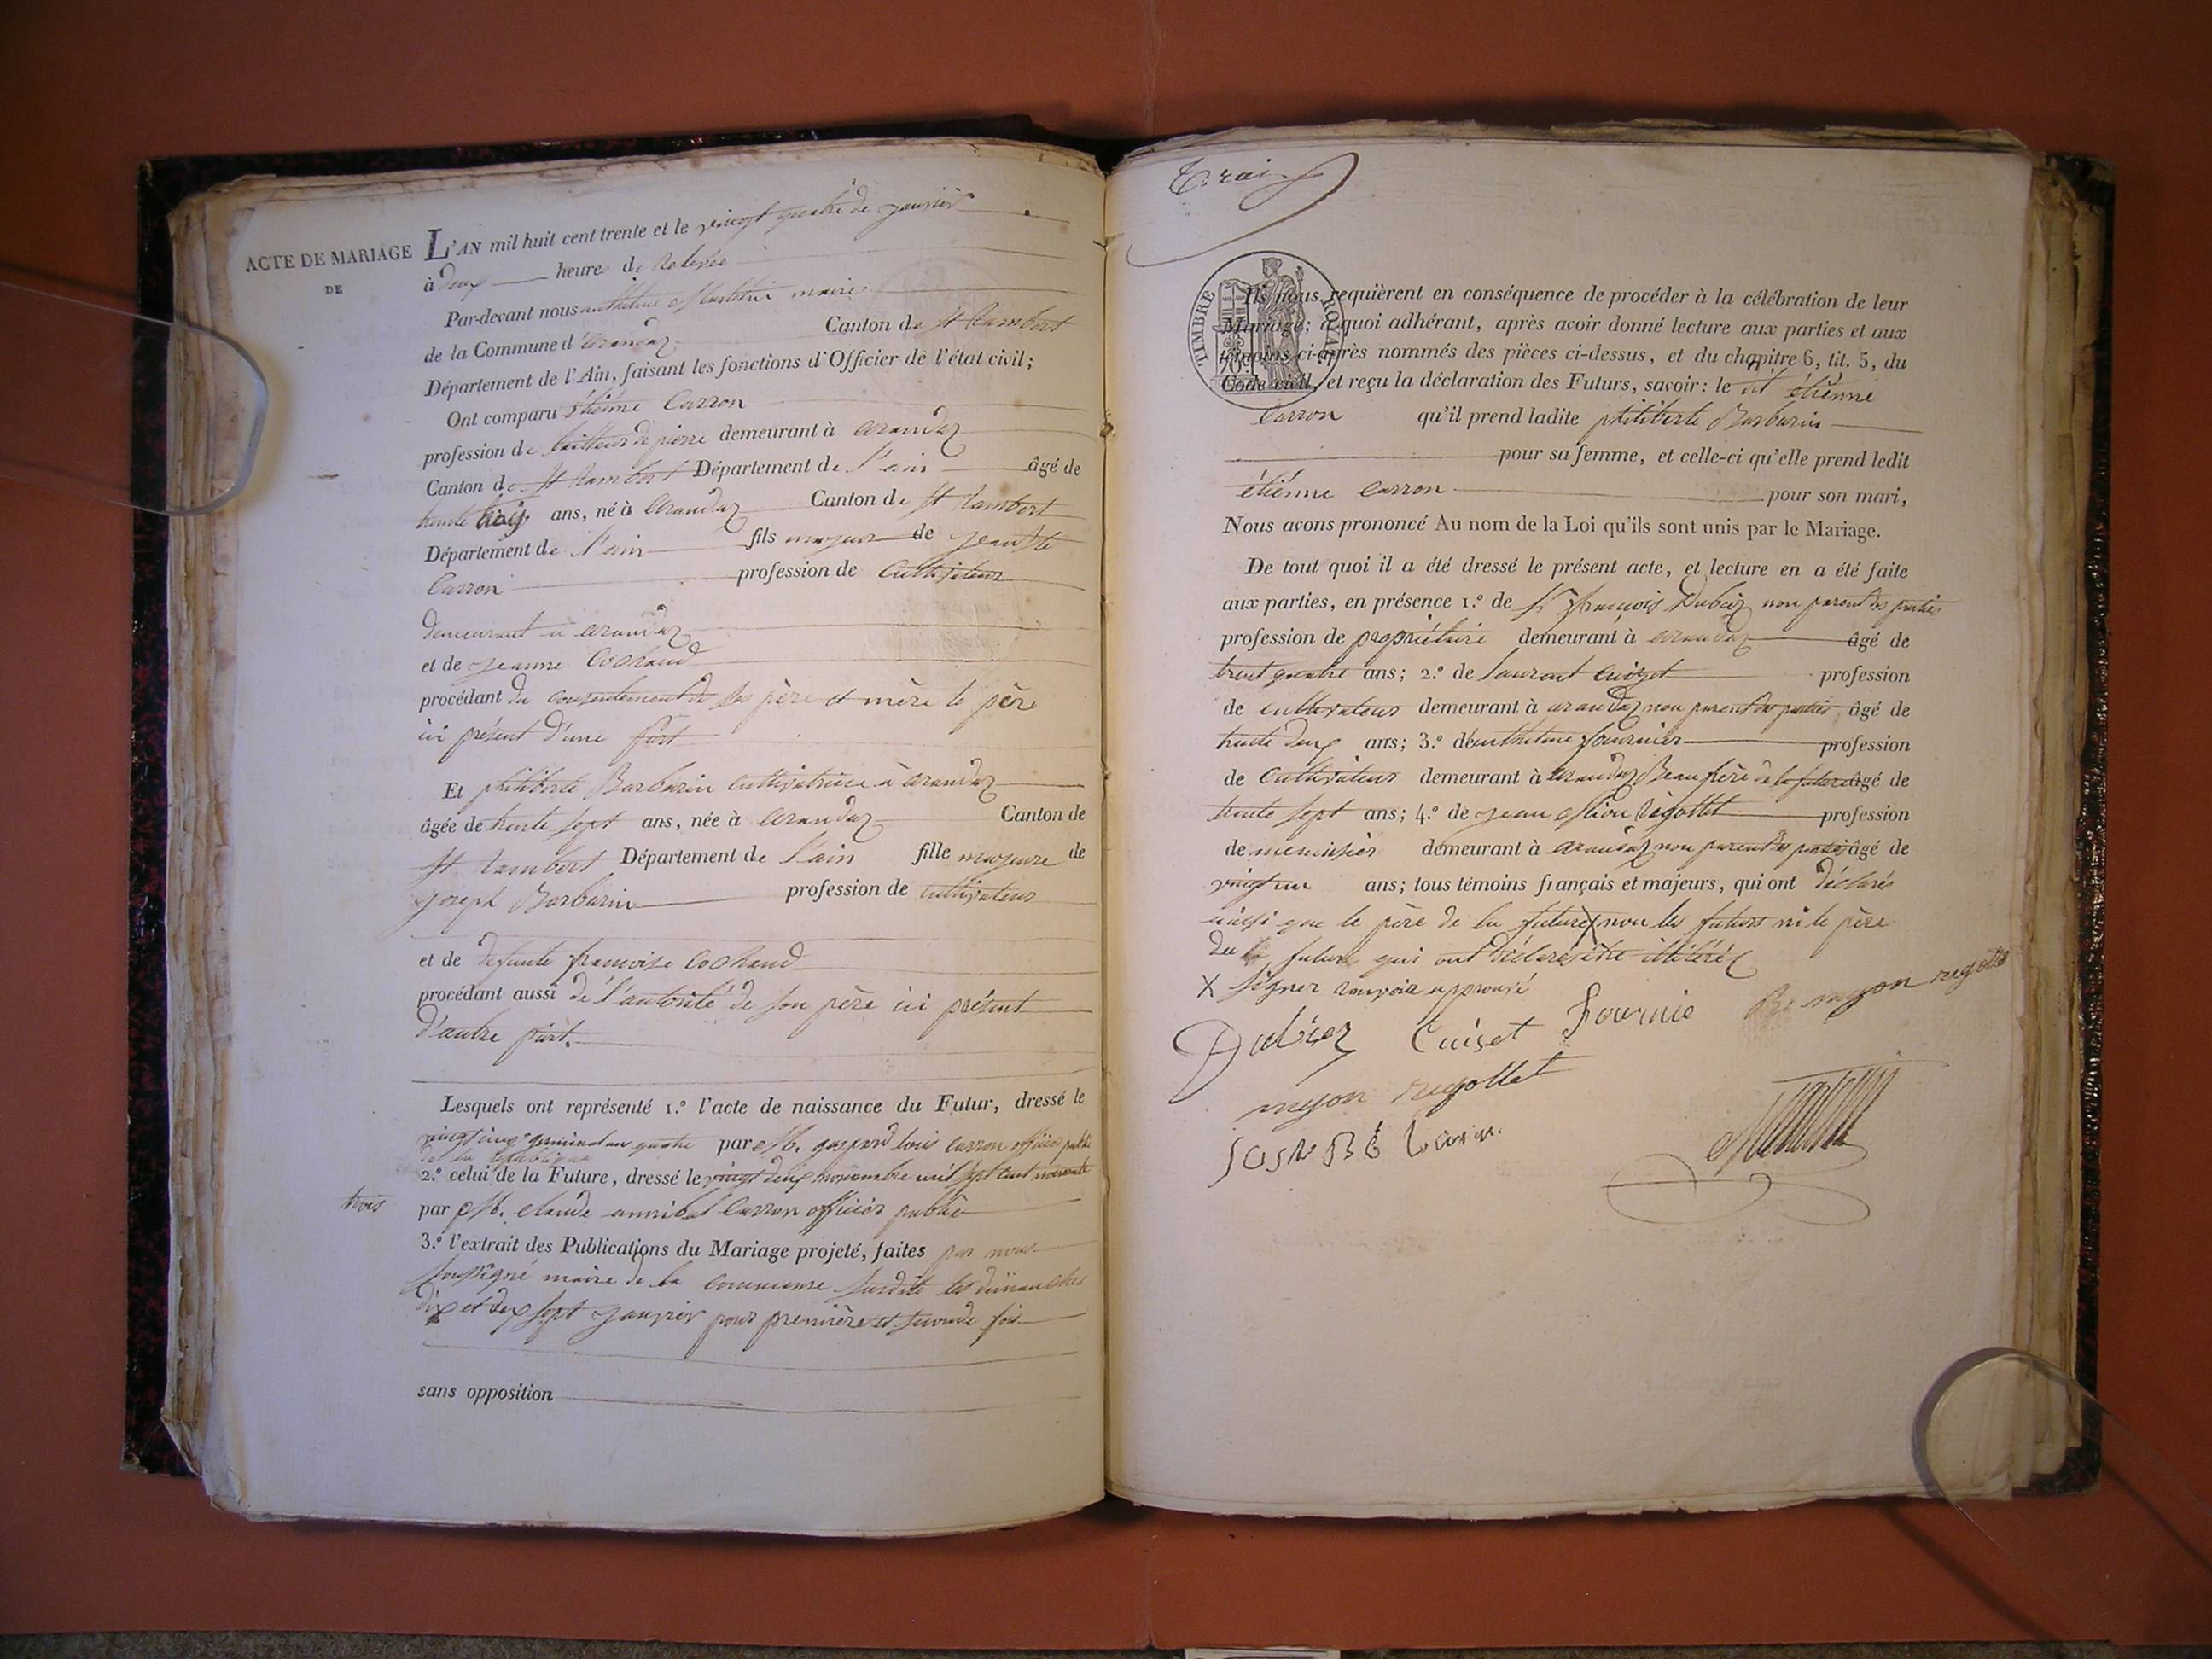 ACTE DE MARIAGE
DE
L'AN mil huit cent trente et le vingt quatre de janvier
à deux heures de Relevée
Par-devant nous anthelme maire
de la Commune d'arandaz Canton de St Rambert
Département de l'Ain, faisant les fonctions d'Officier de l'état civil;
Ont comparu étiénne Carron
profession de tailleur de pierre demeurant à arandaz
Canton de St Rambert Département de l'ain âgé de
trente trois ans, né à arandaz Canton de St Rambert
Département de l'ain fils majeur de jean Bte
Carron profession de Cultivateur
demeurant à arandaz
et de jeanne Cochaud
procédant du consentement de ses père et mère le père
ici présent d'une part
Et philiberte Barbarin cultivatrice à arandaz
âgée de trente sept ans, née à arandaz Canton de
St Rambert Département de l'ain fille majeure de
joseph Barbarin profession de cultivateur
et de defunte françoise Cochaud
procédant aussi de l'autorité de son père ici présent
d'autre part.
Lesquels ont représenté 1.º l'acte de naissance du Futur, dressé le
vingt germinal an quatre par M. gaspard louis carron officier public
de la république
2.º celui de la Future, dressé le vingt deux novembre mil sept cent nonante
trois
par M. claude annibal Carron officier public
3.º l'extrait des Publications du Mariage projeté, faites par nous
soussigné maire de la commune susdite les dimanches
dix et dix sept janvier pour première et seconde fois
sans opposition
TIMBRE ROYAL
70 c
Ils nous requièrent en conséquence de procéder à la célébration de leur
Mariage; à quoi adhérant, après avoir donné lecture aux parties et aux
témoins ci-après nommés des pièces ci-dessus, et du chapitre 6, tit. 5, du
Code civil, et reçu la déclaration des Futurs, savoir: le dit étiénne
Carron qu'il prend ladite philiberte Barbarin
pour sa femme, et celle-ci qu'elle prend ledit
étiénne carron pour son mari,
Nous avons prononcé Au nom de la Loi qu'ils sont unis par le Mariage.
De tout quoi il a été dressé le présent acte, et lecture en a été faite
aux parties, en présence 1.º de Sr françois Dubiez non parent des parties
profession de propriétaire demeurant à arandaz âgé de
trent quatre ans; 2.º de laurent cuizet profession
de cultivateur demeurant à arandaz non parent des parties âgé de
trente deux ans; 3.º d'anthelme fournier profession
de Cultivateur demeurant à arandaz Beau frère de la future âgé de
trente sept ans; 4.º de jean Rigottet profession
de menuisier demeurant à arandaz non parent des parties âgé de
vingt un ans; tous témoins français et majeurs, qui ont déclarés
ainsi que le père de la future X non les futurs ni le père
du futur qui ont déclarés être illitérés
X signer renvoiz approuvé
Dubiez Cuiset Fournie myon rigotte
myon rigottet